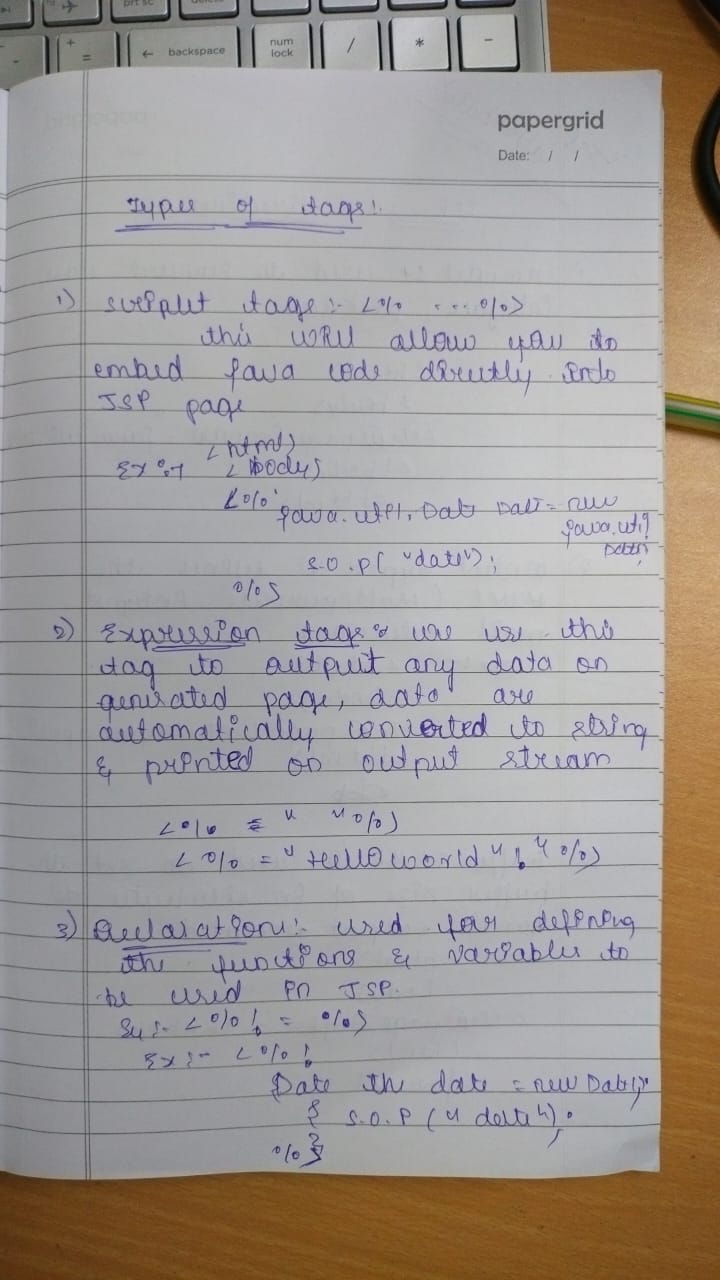 prt sc
delete
+
=
← backspace
num
lock
/
*
-
papergrid
Date: / /
Types of tags:
1) scriplet tags :- <% ...%>
this will allow you to
embed java code directly into
JSP page
<html>
Ex :- <body>
<%
java.util. Date Date = new
java.util
Date()
S.O.P( "date");
%>
2) Expression tags : use this
tag to output any data on
generated page, data are
automatically converted to string
& printed on output stream
<% = " " %>
<% = " Hello world " ! " %>
3) Declaration :- used for defining
the functions & variables to
be used in JSP.
Sy :- <% ! = %>
Ex :- <% !
Date the date = new Date();
{ S.O.P ( " date ");
}
%>